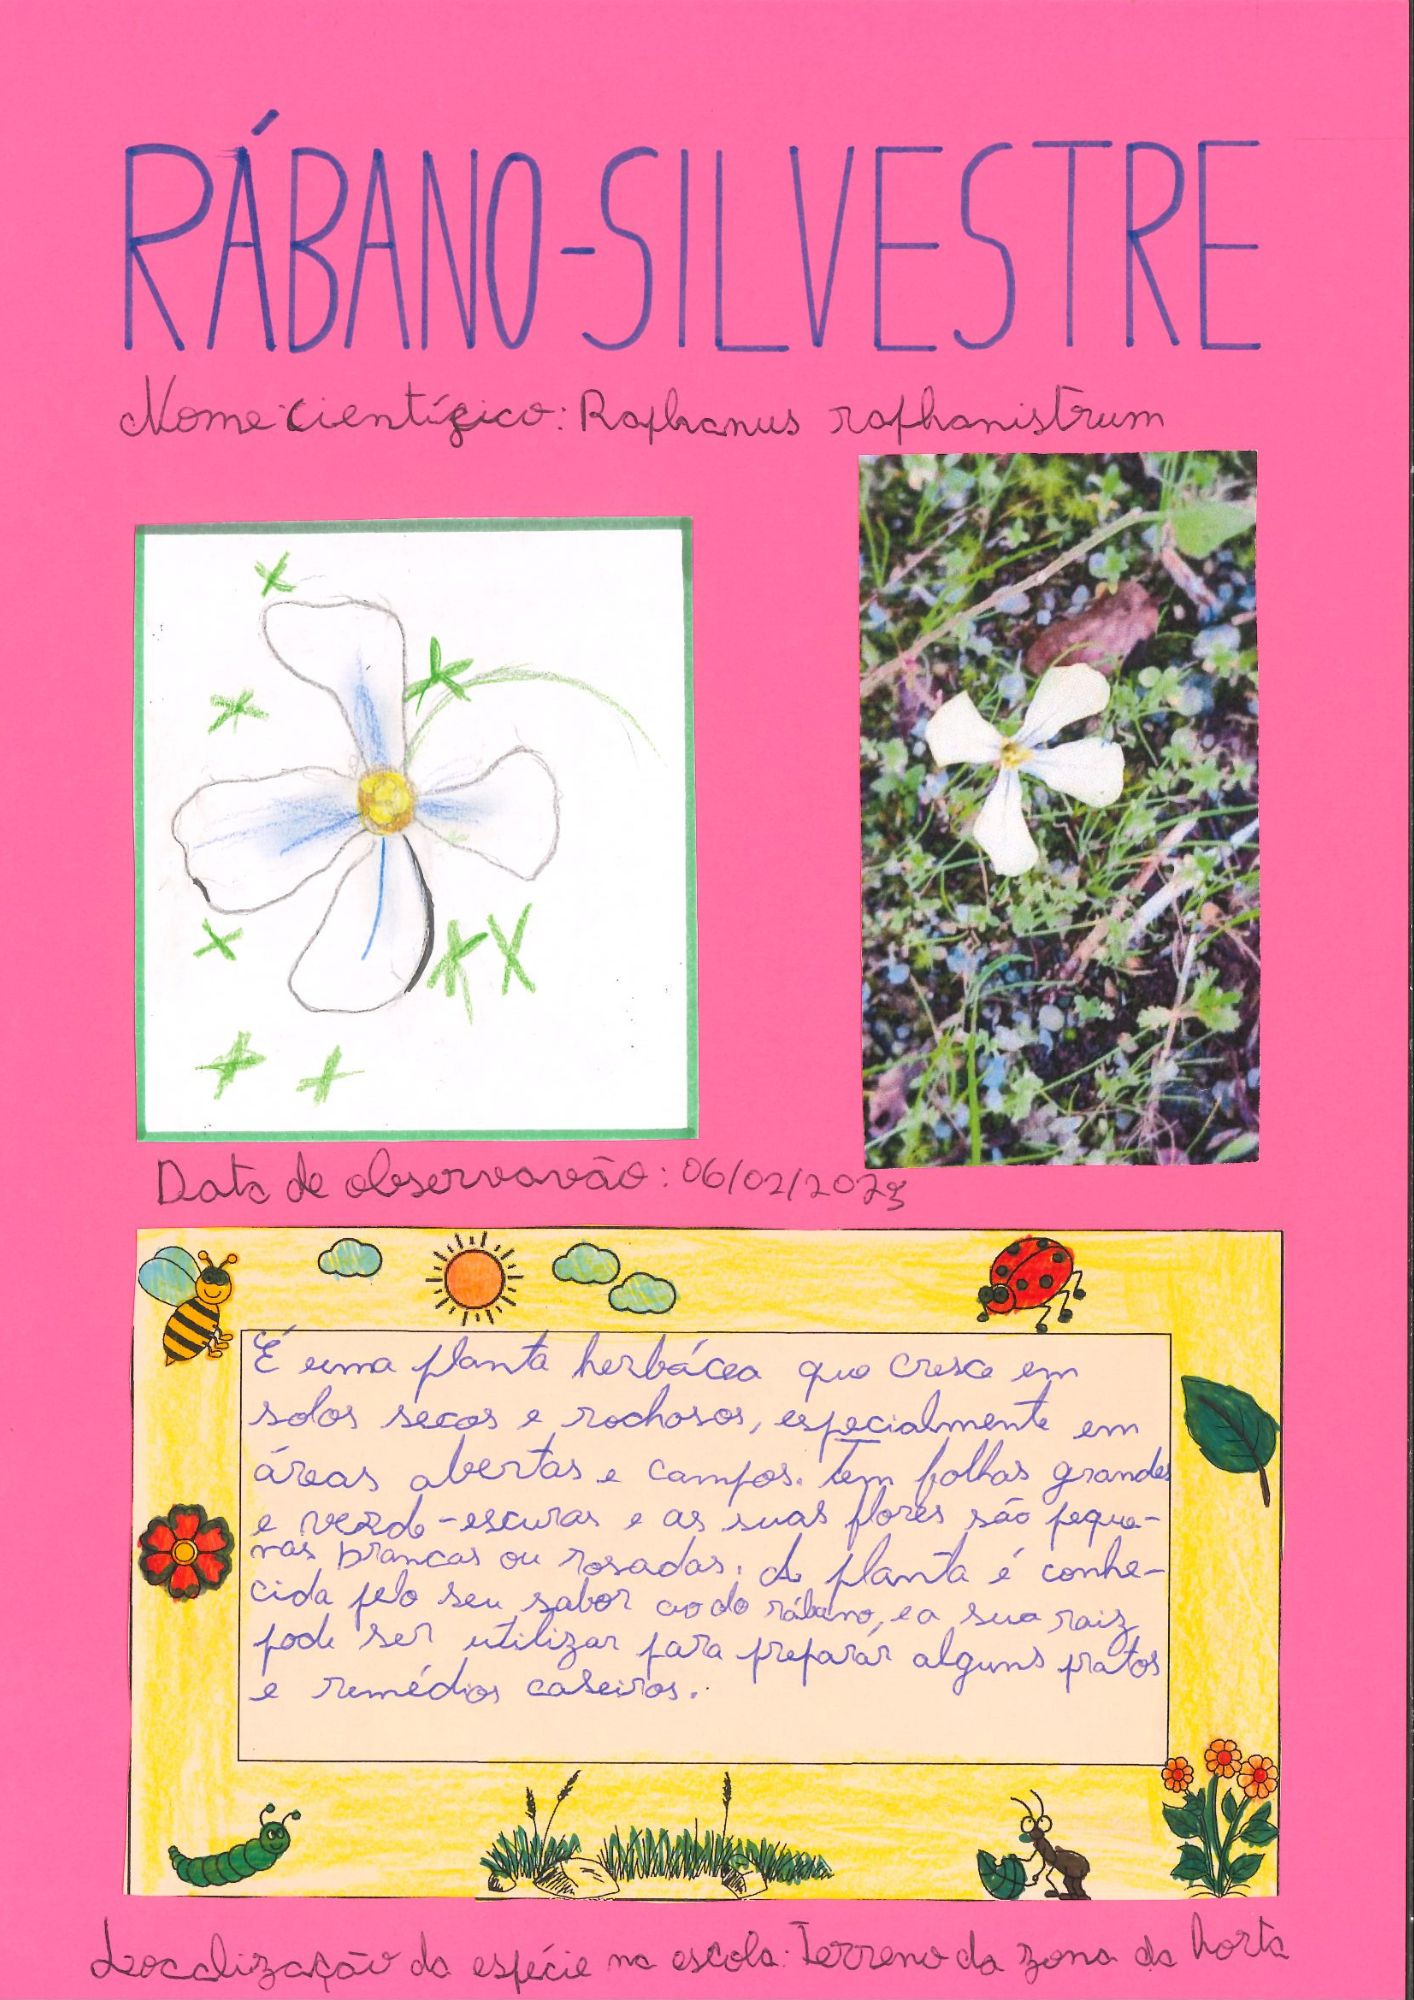 RÁBANO-SILVESTRE
Nome científico: Raphanus raphanistrum
Data de observavão: 06/02/2023
É uma planta herbácea que cresce em
solos secos e rochosos, especialmente em
áreas abertas e campos. Tem folhas grandes
e verde-escuras e as suas flores são peque-
nas brancas ou rosadas. A planta é conhe-
cida pelo seu sabor ao do rábano, e a sua raiz
pode ser utilizar para preparar alguns pratos
e remédios caseiros.
Localização da espécie na escola: Terreno da zona da horta